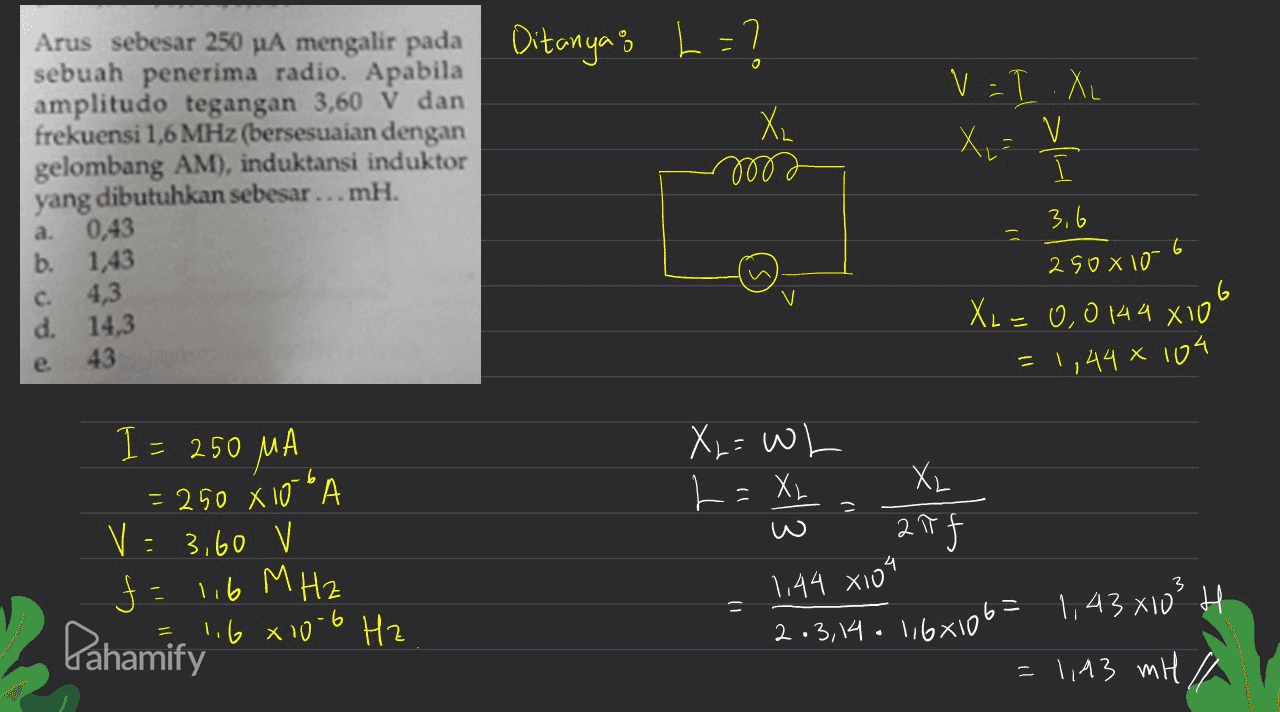 Arus sebesar 250 µA mengalir pada
sebuah penerima radio. Apabila
amplitudo tegangan 3,60 V dan
frekuensi 1,6 MHz (bersesuaian dengan
gelombang AM), induktansi induktor
yang dibutuhkan sebesar ... mH.
a. 0,43
b. 1,43
c. 4,3
d. 14,3
e. 43
Ditanya : L = ?
XL
V
V = I . XL
XL = V / I
= 3,6 / 250 x 10^-6
XL = 0,0144 x10^6
= 1,44 x 10^4
I = 250 µA
= 250 x10^-6 A
V = 3,60 V
f = 1,6 MHz
= 1,6 x10^-6 Hz
XL = ωL
L = XL / ω = XL / 2πf
= 1,44 x10^4 / 2.3,14 . 1,6x10^6 = 1,43 x10^3 H
= 1,43 mH //
Pahamify